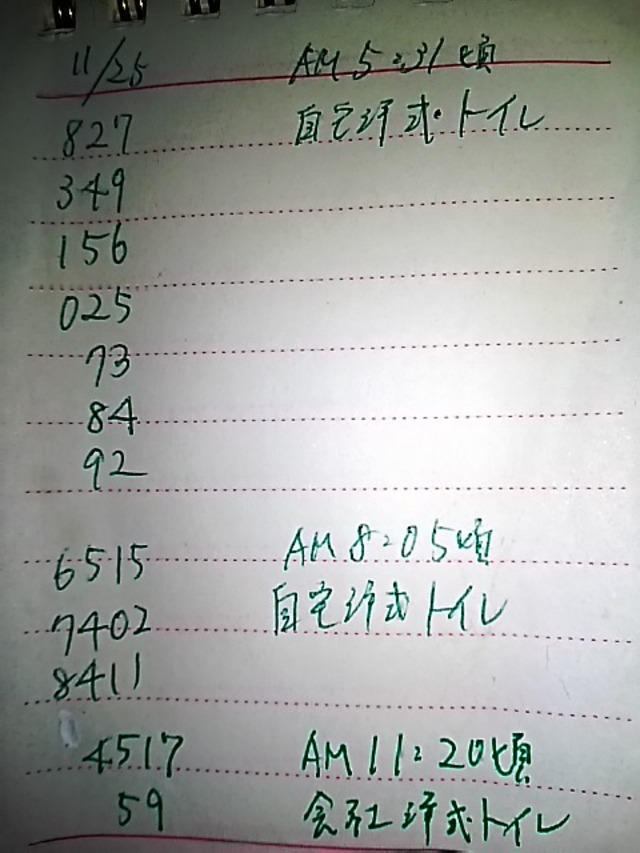 11/25 AM 5:31頃
827 自宅洋式トイレ
349
156
025
73
84
92
6515 AM 8:05頃
7402 自宅洋式トイレ
8411
4517 AM 11:20頃
59 会社洋式トイレ